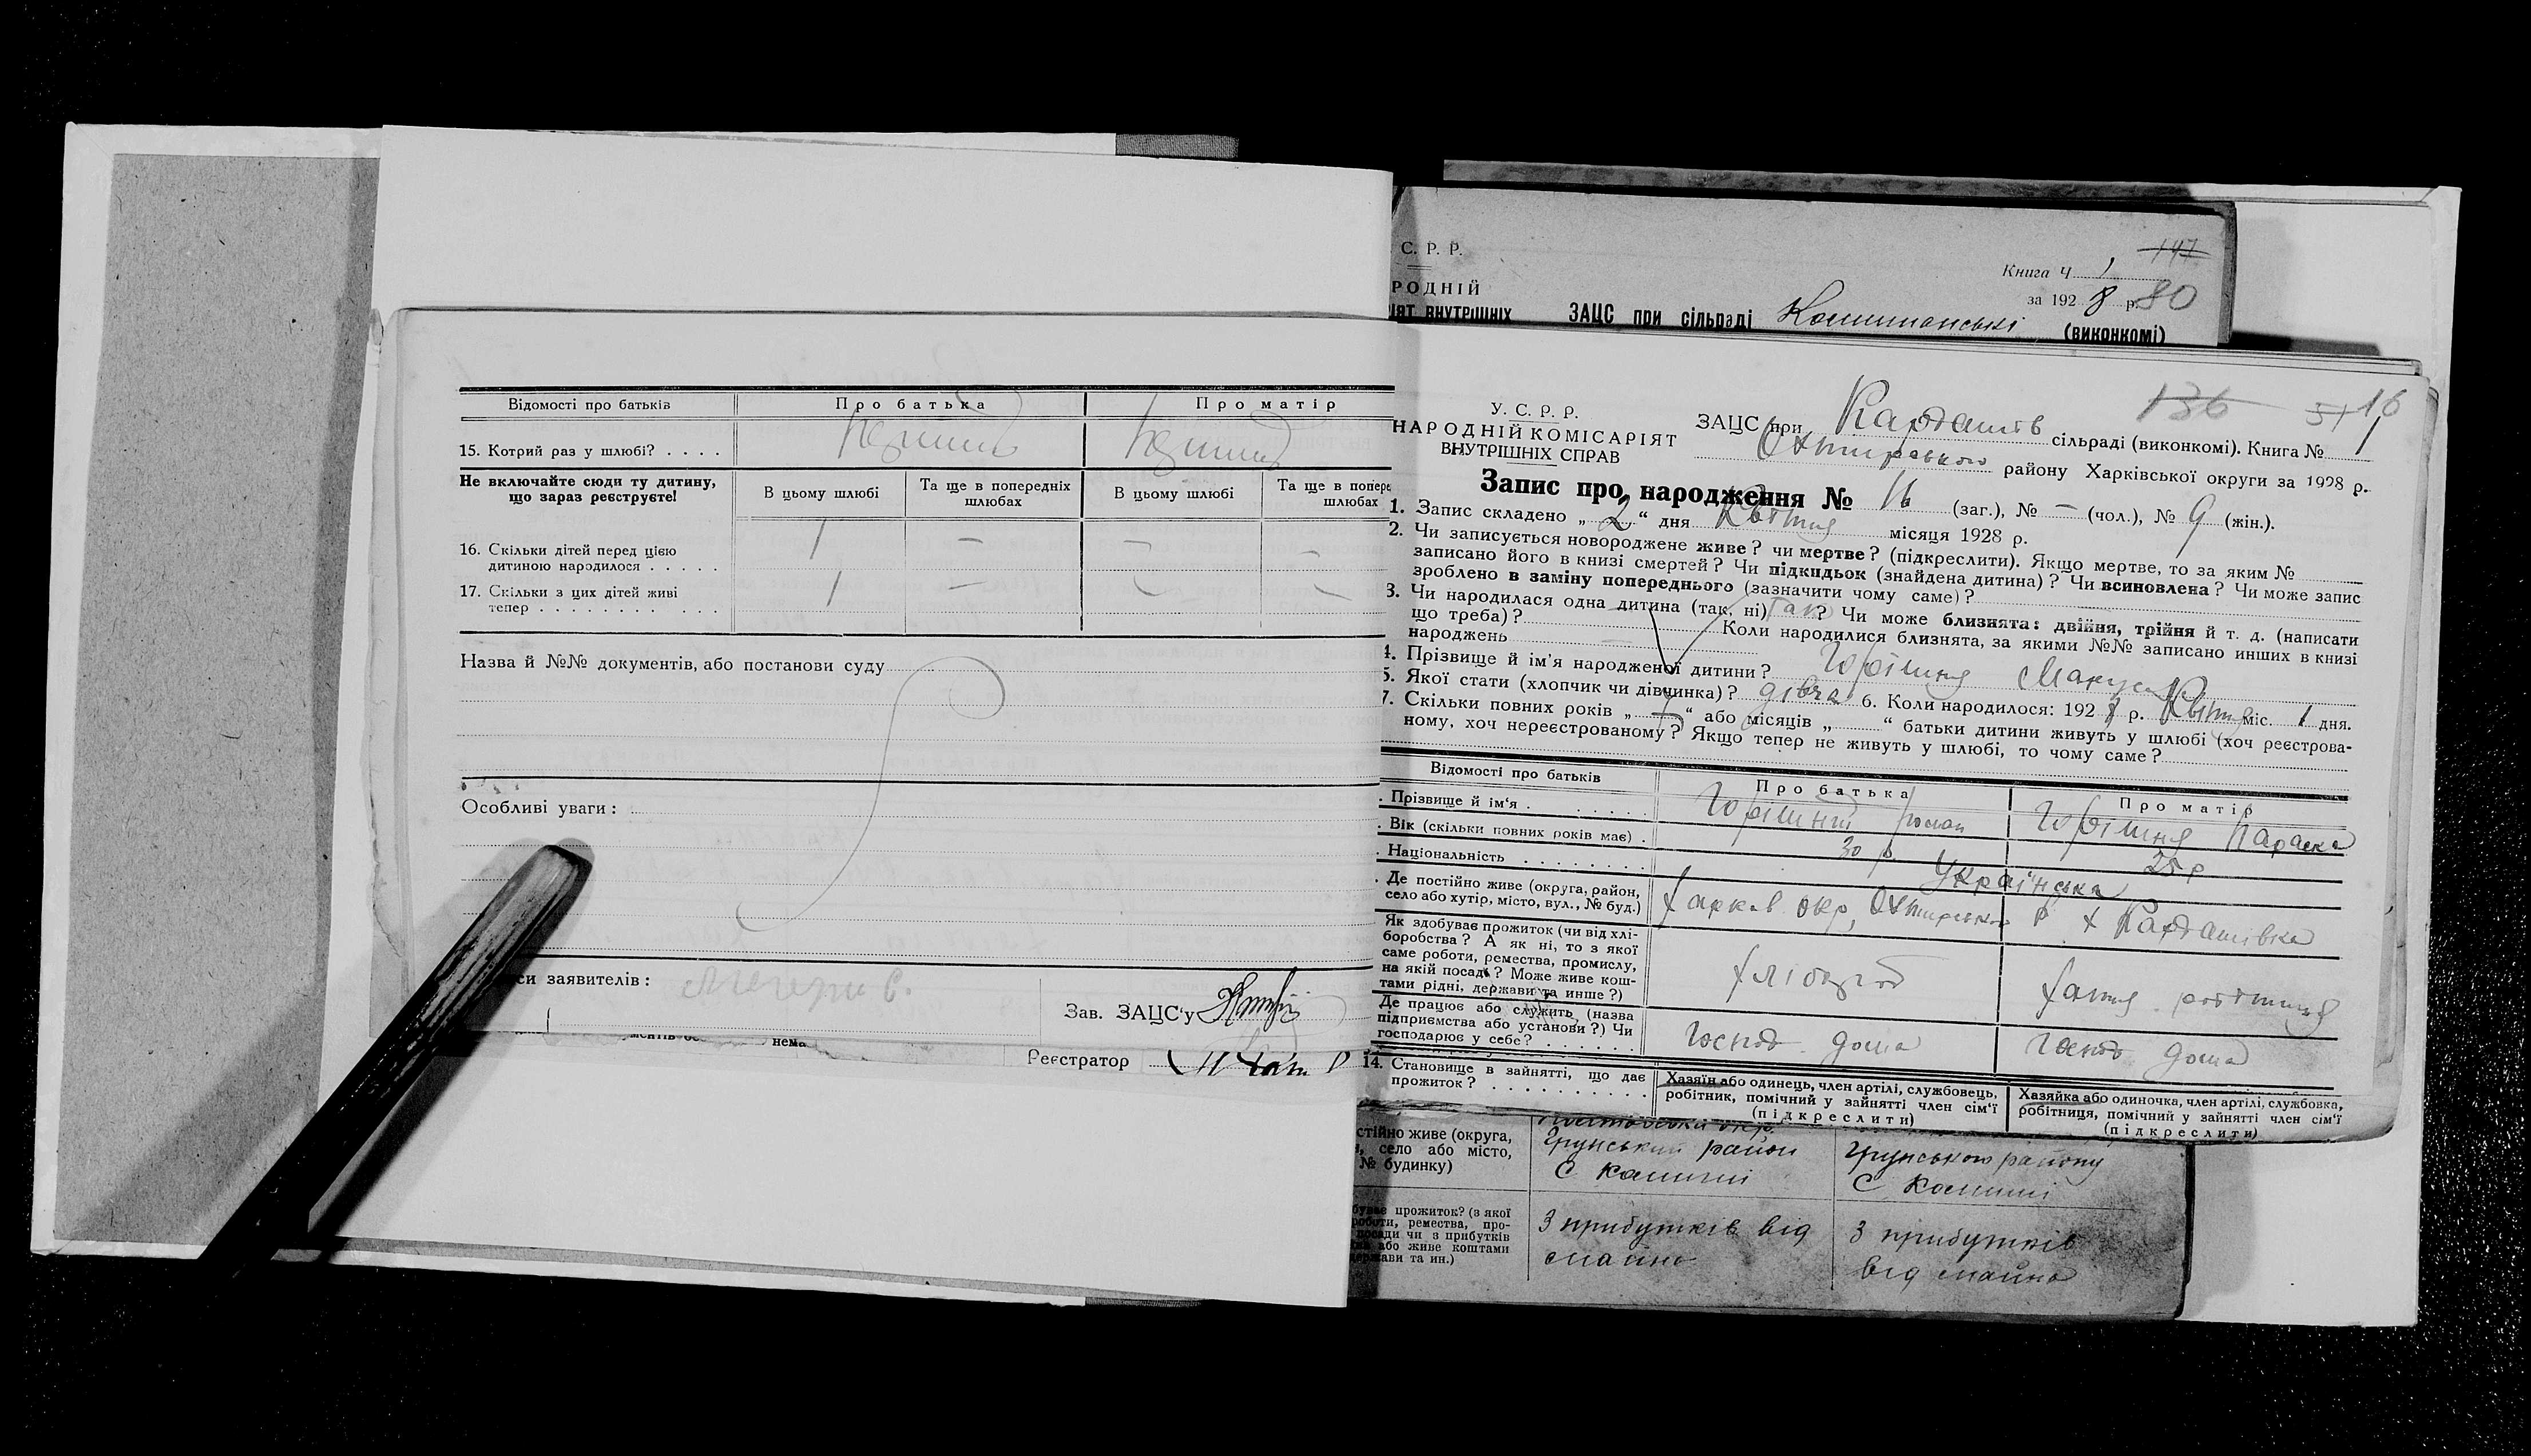 Відомості про батьків
Про батька
Про матір
15. Котрий раз у шлюбі? . . . .
Не включайте сюди ту дитину,
що зараз реєструєте!
В цьому шлюбі
Та ще в попередніх
шлюбах
В цьому шлюбі
Та ще в попере
шлюбах
16. Скільки дітей перед цією
дитиною народилося . . . . .
1 — — —
17. Скільки з цих дітей живі
тепер . . . . . . . . . . .
1 — — —
Назва й №№ документів, або постанови суду
Особливі уваги :
си заявителів :
Зав. ЗАЦС'у
нема
Реєстратор
С. Р. Р.
147
Книга Ч 1
РОДНІЙ
за 192 8 р. 80
ІЯТ ВНУТРІШНІХ
ЗАЦС при сільраді
(виконкомі)
136 51 16
У. С. Р. Р.
НАРОДНІЙ КОМІСАРІЯТ
ВНУТРІШНІХ СПРАВ
ЗАЦС при Кардашів сільраді (виконкомі). Книга № 1
Охтирського району Харківської округи за 1928 р.
Запис про народження № 16 (заг.), № — (чол.), № 9 (жін.).
1. Запис складено „ 2 “ дня Квітня місяця 1928 р.
2. Чи записується новороджене живе? чи мертве? (підкреслити). Якщо мертве, то за яким №
записано його в книзі смертей? Чи підкидьок (знайдена дитина)? Чи всиновлена? Чи може запис
зроблено в заміну попереднього (зазначити чому саме)?
3. Чи народилася одна дитина (так, ні) так? Чи може близнята: двійня, трійня й т. д. (написати
що треба)? Коли народилися близнята, за якими №№ записано инших в книзі
народжень —
4. Прізвище й ім'я народженої дитини?
5. Якої стати (хлопчик чи дівчинка)? дівча 6. Коли народилося: 192 8 р. Квітня міс. 1 дня.
7. Скільки повних років „ “ або місяців „ “ батьки дитини живуть у шлюбі (хоч реєстрова-
ному, хоч нереєстрованому? Якщо тепер не живуть у шлюбі, то чому саме?
Відомості про батьків
Про батька
Про матір
. Прізвище й ім'я . . . . . .
Роман
Параска
. Вік (скільки повних років має) .
30 р.
25 р
. Національність . . . . . . . .
Українська
. Де постійно живе (округа, район,
село або хутір, місто, вул., № буд.)
Харків окр, Охтирського р х Кардашівка
Як здобуває прожиток (чи від хлі-
боробства? А як ні, то з якої
саме роботи, ремества, промислу,
на якій посаді? Може живе кош-
тами рідні, держави та инше?)
хлібороб
Де працює або служить (назва
підприємства або установи?) Чи
господарює у себе? . . . . . .
Господ. дома
Господ. дома
14. Становище в зайнятті, що дає
прожиток? . . . . . . . . . .
Хазяїн або одинець, член артілі, службовець,
робітник, помічний у зайнятті член сім'ї
(підкреслити)
Хазяйка або одиночка, член артілі, службовка,
робітниця, помічний у зайнятті член сім'ї
(підкреслити)
стійно живе (округа,
, село або місто,
№ будинку)
Грунський район
Грунського району
буває прожиток? (з якої
роботи, ремества, про-
посади чи з прибутків
або живе коштами
ржави та ин.)
З прибутків від
майна
З прибутків
від майна